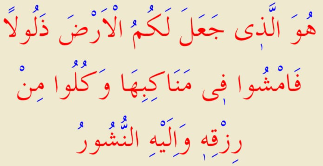 هُوَ الَّذٖى جَعَلَ لَكُمُ الْاَرْضَ ذَلُولًا
فَامْشُوا فٖى مَنَاكِبِهَا وَكُلُوا مِنْ
رِزْقِهٖ وَاِلَيْهِ النُّشُورُ